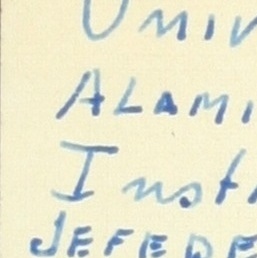 Univ
Alami
Inst
JEFEDE